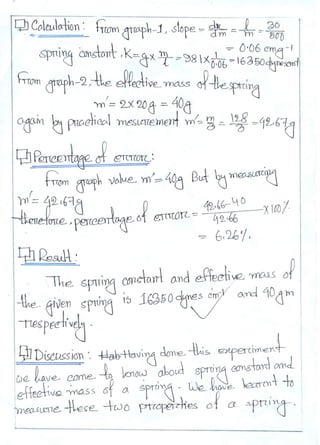 Calculation: From graph-1, slope = dx/dm = l/m = 30/500
= 0.06 cmg⁻¹
spring constant, K = g x m/l = 981 x 1/0.06 = 16350 dynes cm⁻¹
From graph-2, the effective mass of the spring
m' = 2 x 20g = 40g
again by practical mesurement m' = m/3 = 128/3 = 42.67g
Percentage of error:
From graph value m' = 40g But by measuring
m' = 42.67g
therefore, percentage of error = 42.66-40/42.66 x 100%
= 6.26%.
Result:
The spring constant and effective mass of
the given spring is 16350 dynes cm⁻¹ and 40gm
respectively.
Discussion: Having done this experiment
we have come to know about spring constant and
effective mass of a spring. We have learnt to
measure these two properties of a spring.